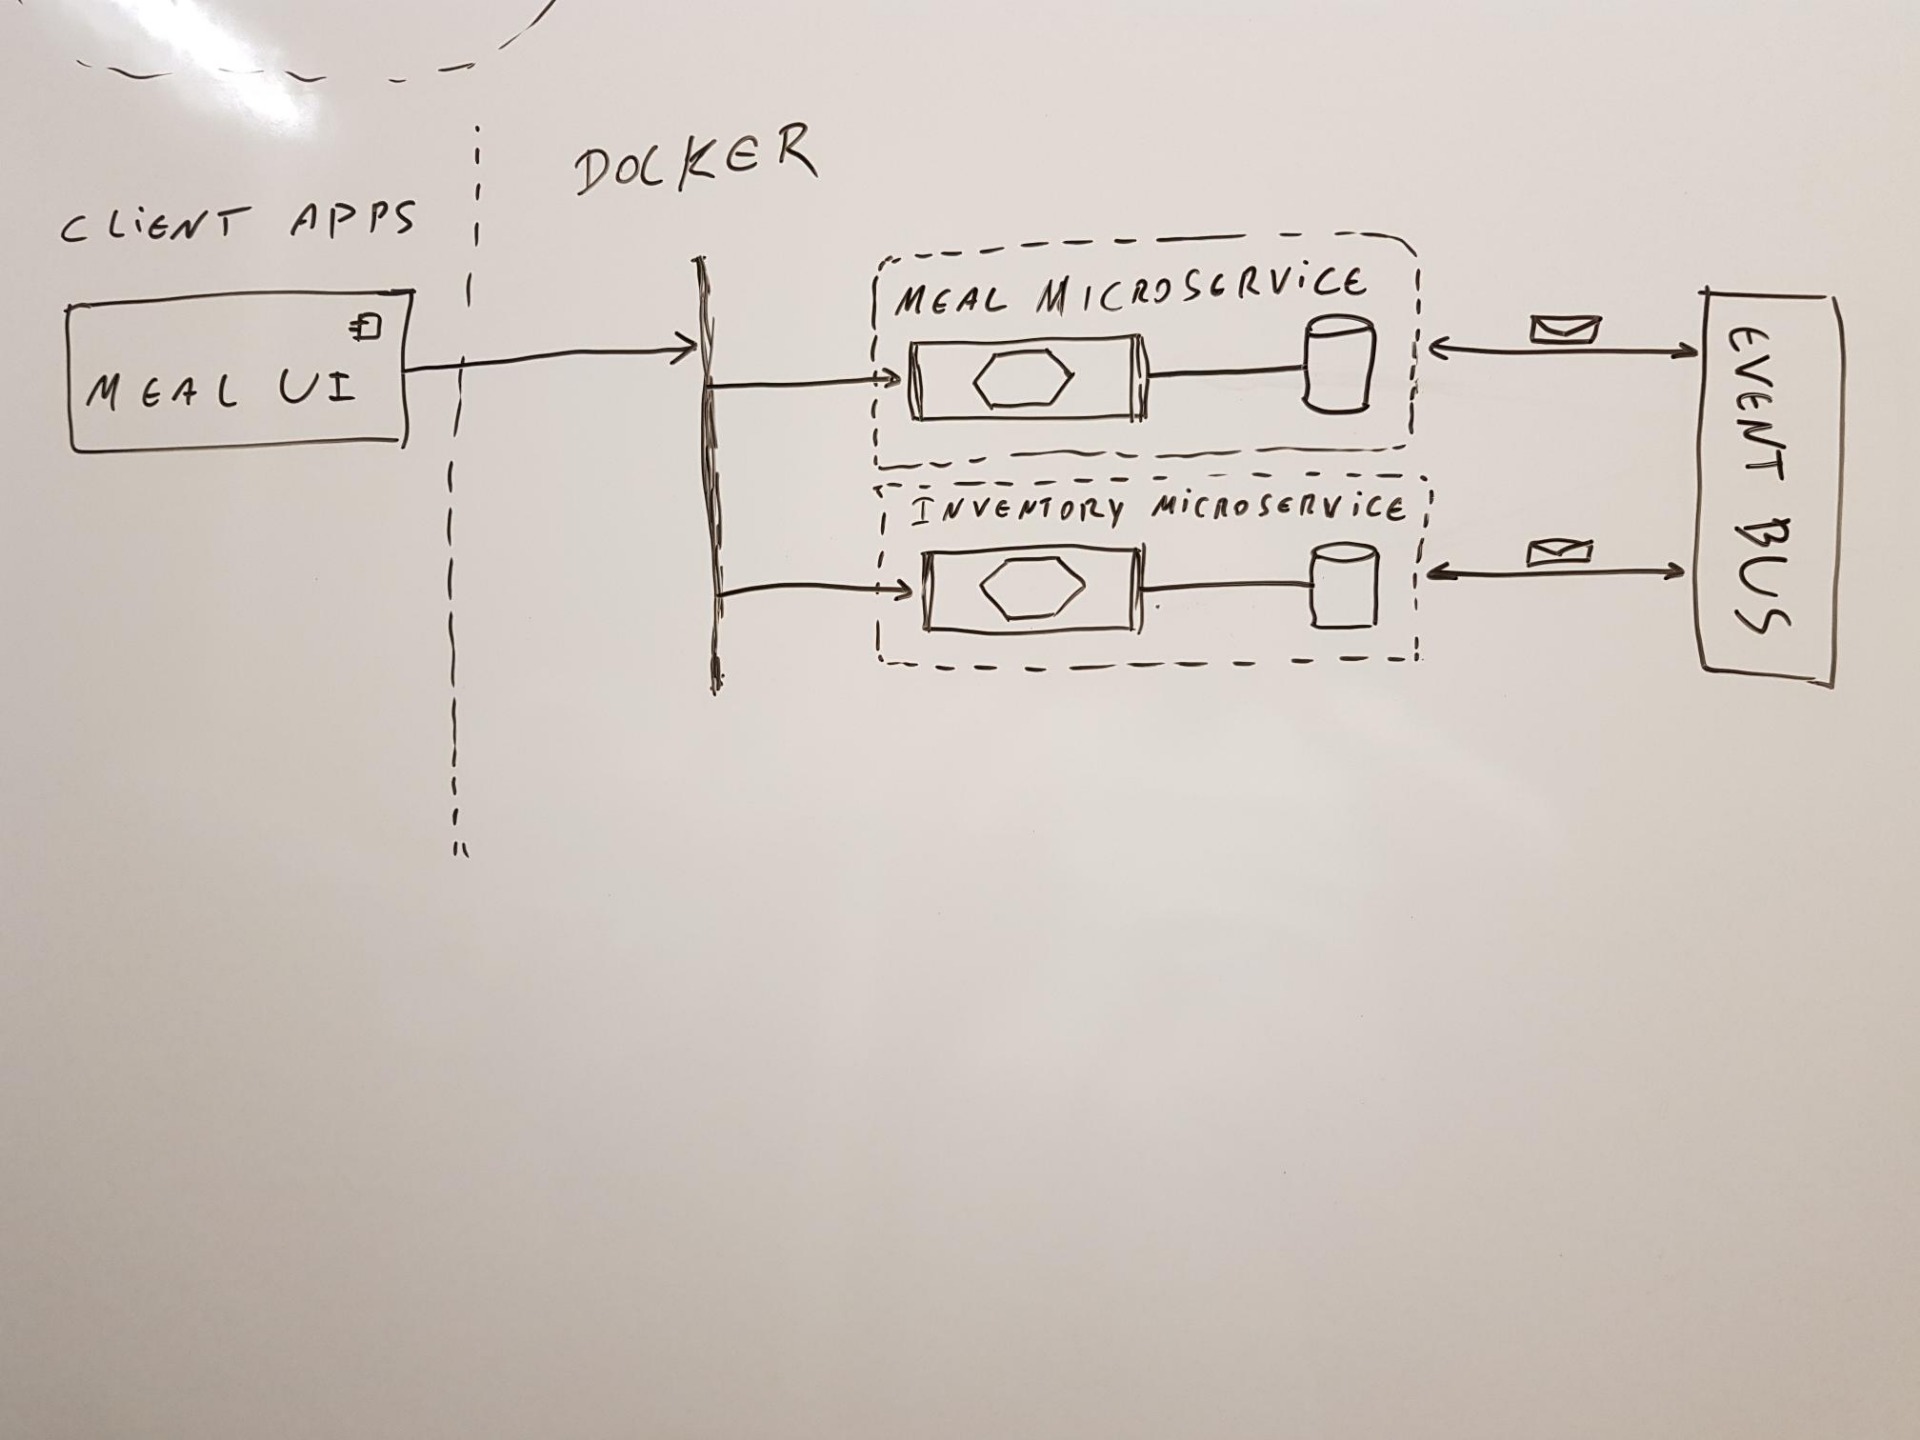 DOCKER
CLiENT APPS
MEAL UI
MEAL MICROSERViCE
INVENTORY MiCROSERViCE
EVENT BUS